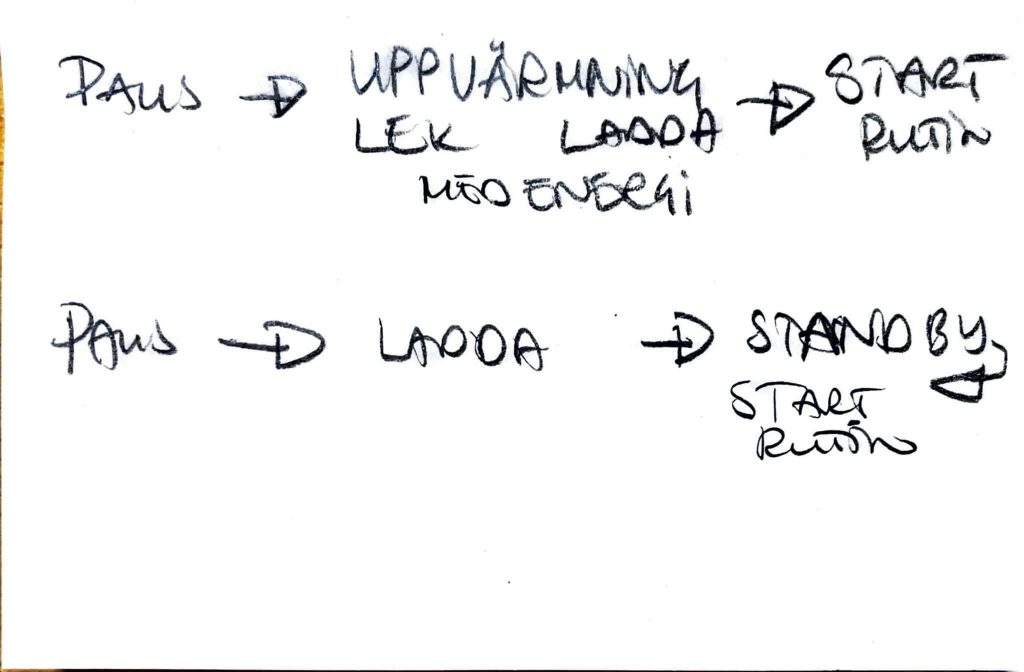 PAUS → UPPVÄRMNING → START
LEK LADDA RUTIN
MED ENERGI
PAUS → LADDA → STANDBY
START
RUTIN